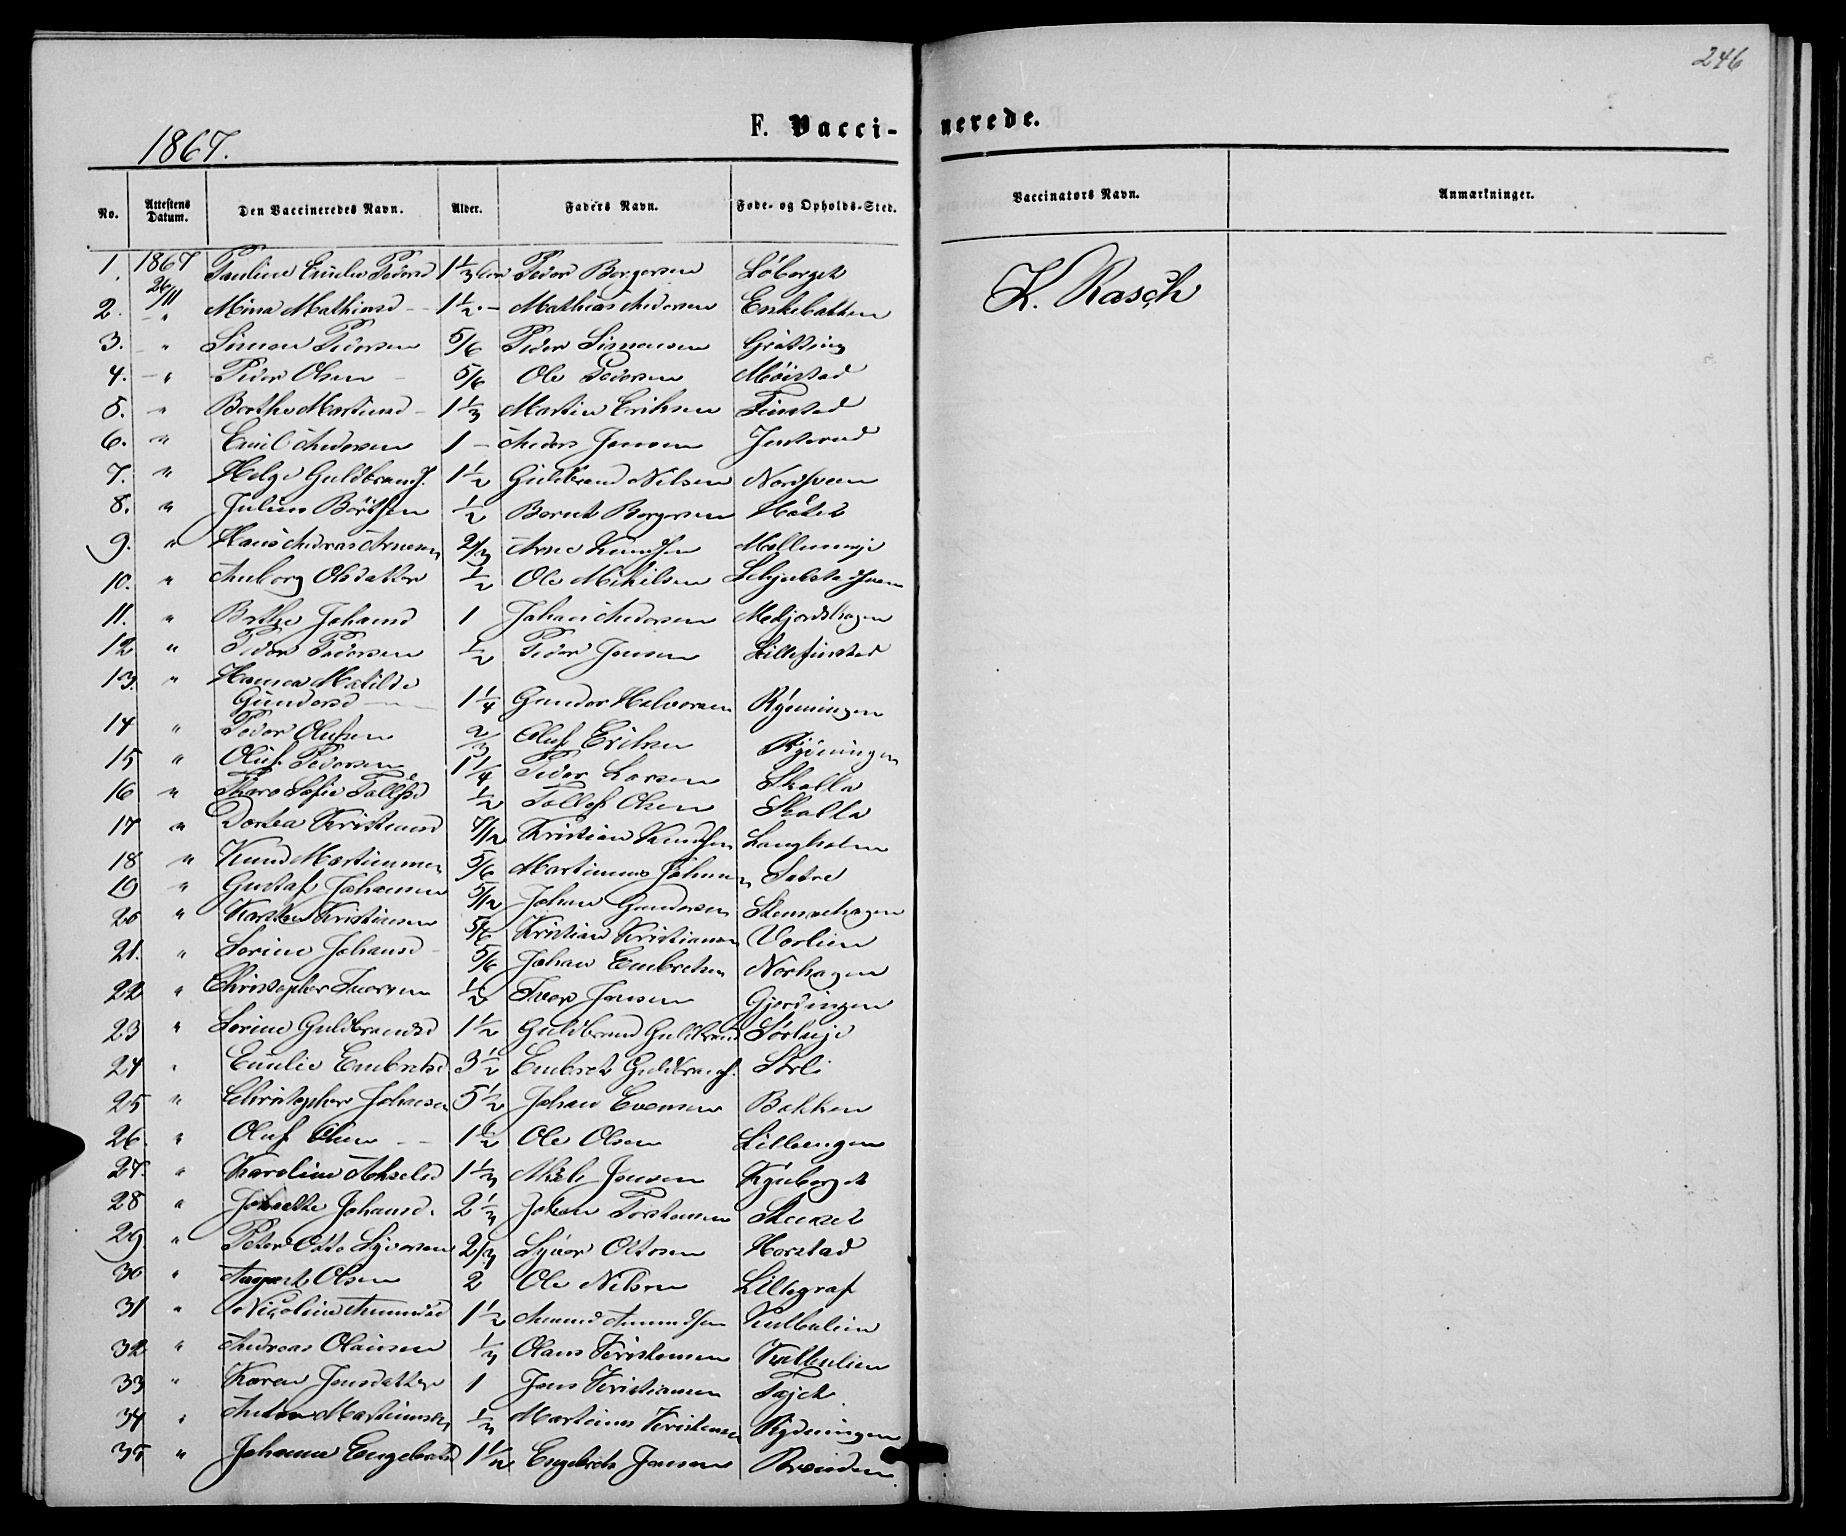 246
F. Vacci-nerede.
1867.
No. Attestens Datum. Den Vaccineredes Navn. Alder. Faders Navn. Føde- og Opholds-Sted. Vaccinators Navn. Anmærkninger.
1. 1867 26/11 Pauline Emilie Pedersd 1 1/3 Peder Borgersen Løberget K. Rasch
2. " Mina Mathiasd 1 1/2 Mathias Andersen Enkebakken
3. " Simen Pedersen 5/6 Peder Simensen Grøtting
4. " Peder Olsen 5/6 Ole Pedersen Møistad
5. " Berthe Martinsd 1 1/3 Martin Eriksen Finstad
6. " Emil Andersen 1 Anders Jensen
7. " Helge Guldbrands. 1 1/2 Guldbrand Nilsen Nordsveen
8. " Julius Berntsen 1/2 Bernt Borgersen
9. " Hans Andreas Arnesen 2/3 Arne Knudsen
10. " Anborg Olsdatter 1/2 Ole Mikelsen
11. " Berthe Johansd 1 Johan Andersen
12 " Peder Pedersen 1/2 Peder Jensen Lillefinstad
13. " Hanna Matilde
Gundersd 1 1/4 Gunder Halvorsen Rydningen
14 " Peder Olufsen 2/3 Oluf Eriksen Rydningen
15 " Oluf Pedersen 1 1/4 Peder Larsen Skalla
16 " Thara Sofie Tollefsd 1/2 Tollef Olsen Skalla
17 " Dortea Kristiansd 7/12 Kristian Knudsen Langholen
18 " Knud Martinusen 5/6 Martinus Johnsen Sætre
19 " Gustaf Johansen 5/12 Johan Gundersen Stenvehagen
20 " Karsten Kristiansen 5/6 Kristian Kristiansen Vorlien
21. " Lorine Johansd 5/6 Johan Embretsen Norhagen
22 " Christopher Iversen 1/2 Iver Jensen Gjerdingen
23 " Lorine Guldbrandsd 1 1/2 Guldbrand Guldbrands
24 " Emilie Embretsd 3 1/2 Embret Guldbrands. Sørli
25 " Christopher Johansen 5 1/2 Johan Evensen Bakken
26. " Oluf Olsen 1 1/2 Ole Olsen Lilleengen
27. " " Karoline Akselsd 1 1/3 Aksel Jensen Nyberget
28 " Johansd. 2 1/3 Johan Torstensen Stenset
29. " Peter Otto Syversen 2/3 Syver Ottosen Harstad
30 " August Olsen 2 Ole Nilsen Lillegraf
31 " Nicoline Amundsd 1 1/2 Amund Amundsen Kulbulien
32 " Andreas Olausen 1/3 Olaus Kristensen Kulbulien
33 " Karen Jensdatter 1 Jens Kristiansen
34 " Anton Martinusen 1/3 Martinus Kristensen Rydningen
35 " Johanne Engebretsd 1 1/2 Engebret Jensen Brænden